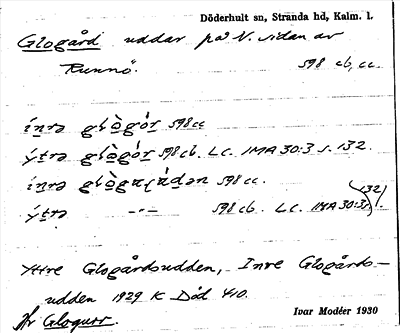 Döderhult sn, Stranda hd, Kalm. l.
Glogård uddar på N. sidan av
Runnö. 598 cb, cc.
ínrə glò̱gór 598 cc
ýtrə glò̱gór 598 cb. LC. IMA 30:3 s. 132.
ínrə 598 cc.
ýtrə -"- 598 cb. LC. IMA 30:3, 132
Yttre Glogårdsudden, Inre Glogårds-
udden 1929 K Död 410.
Glogurr. Ivar Modéer 1930